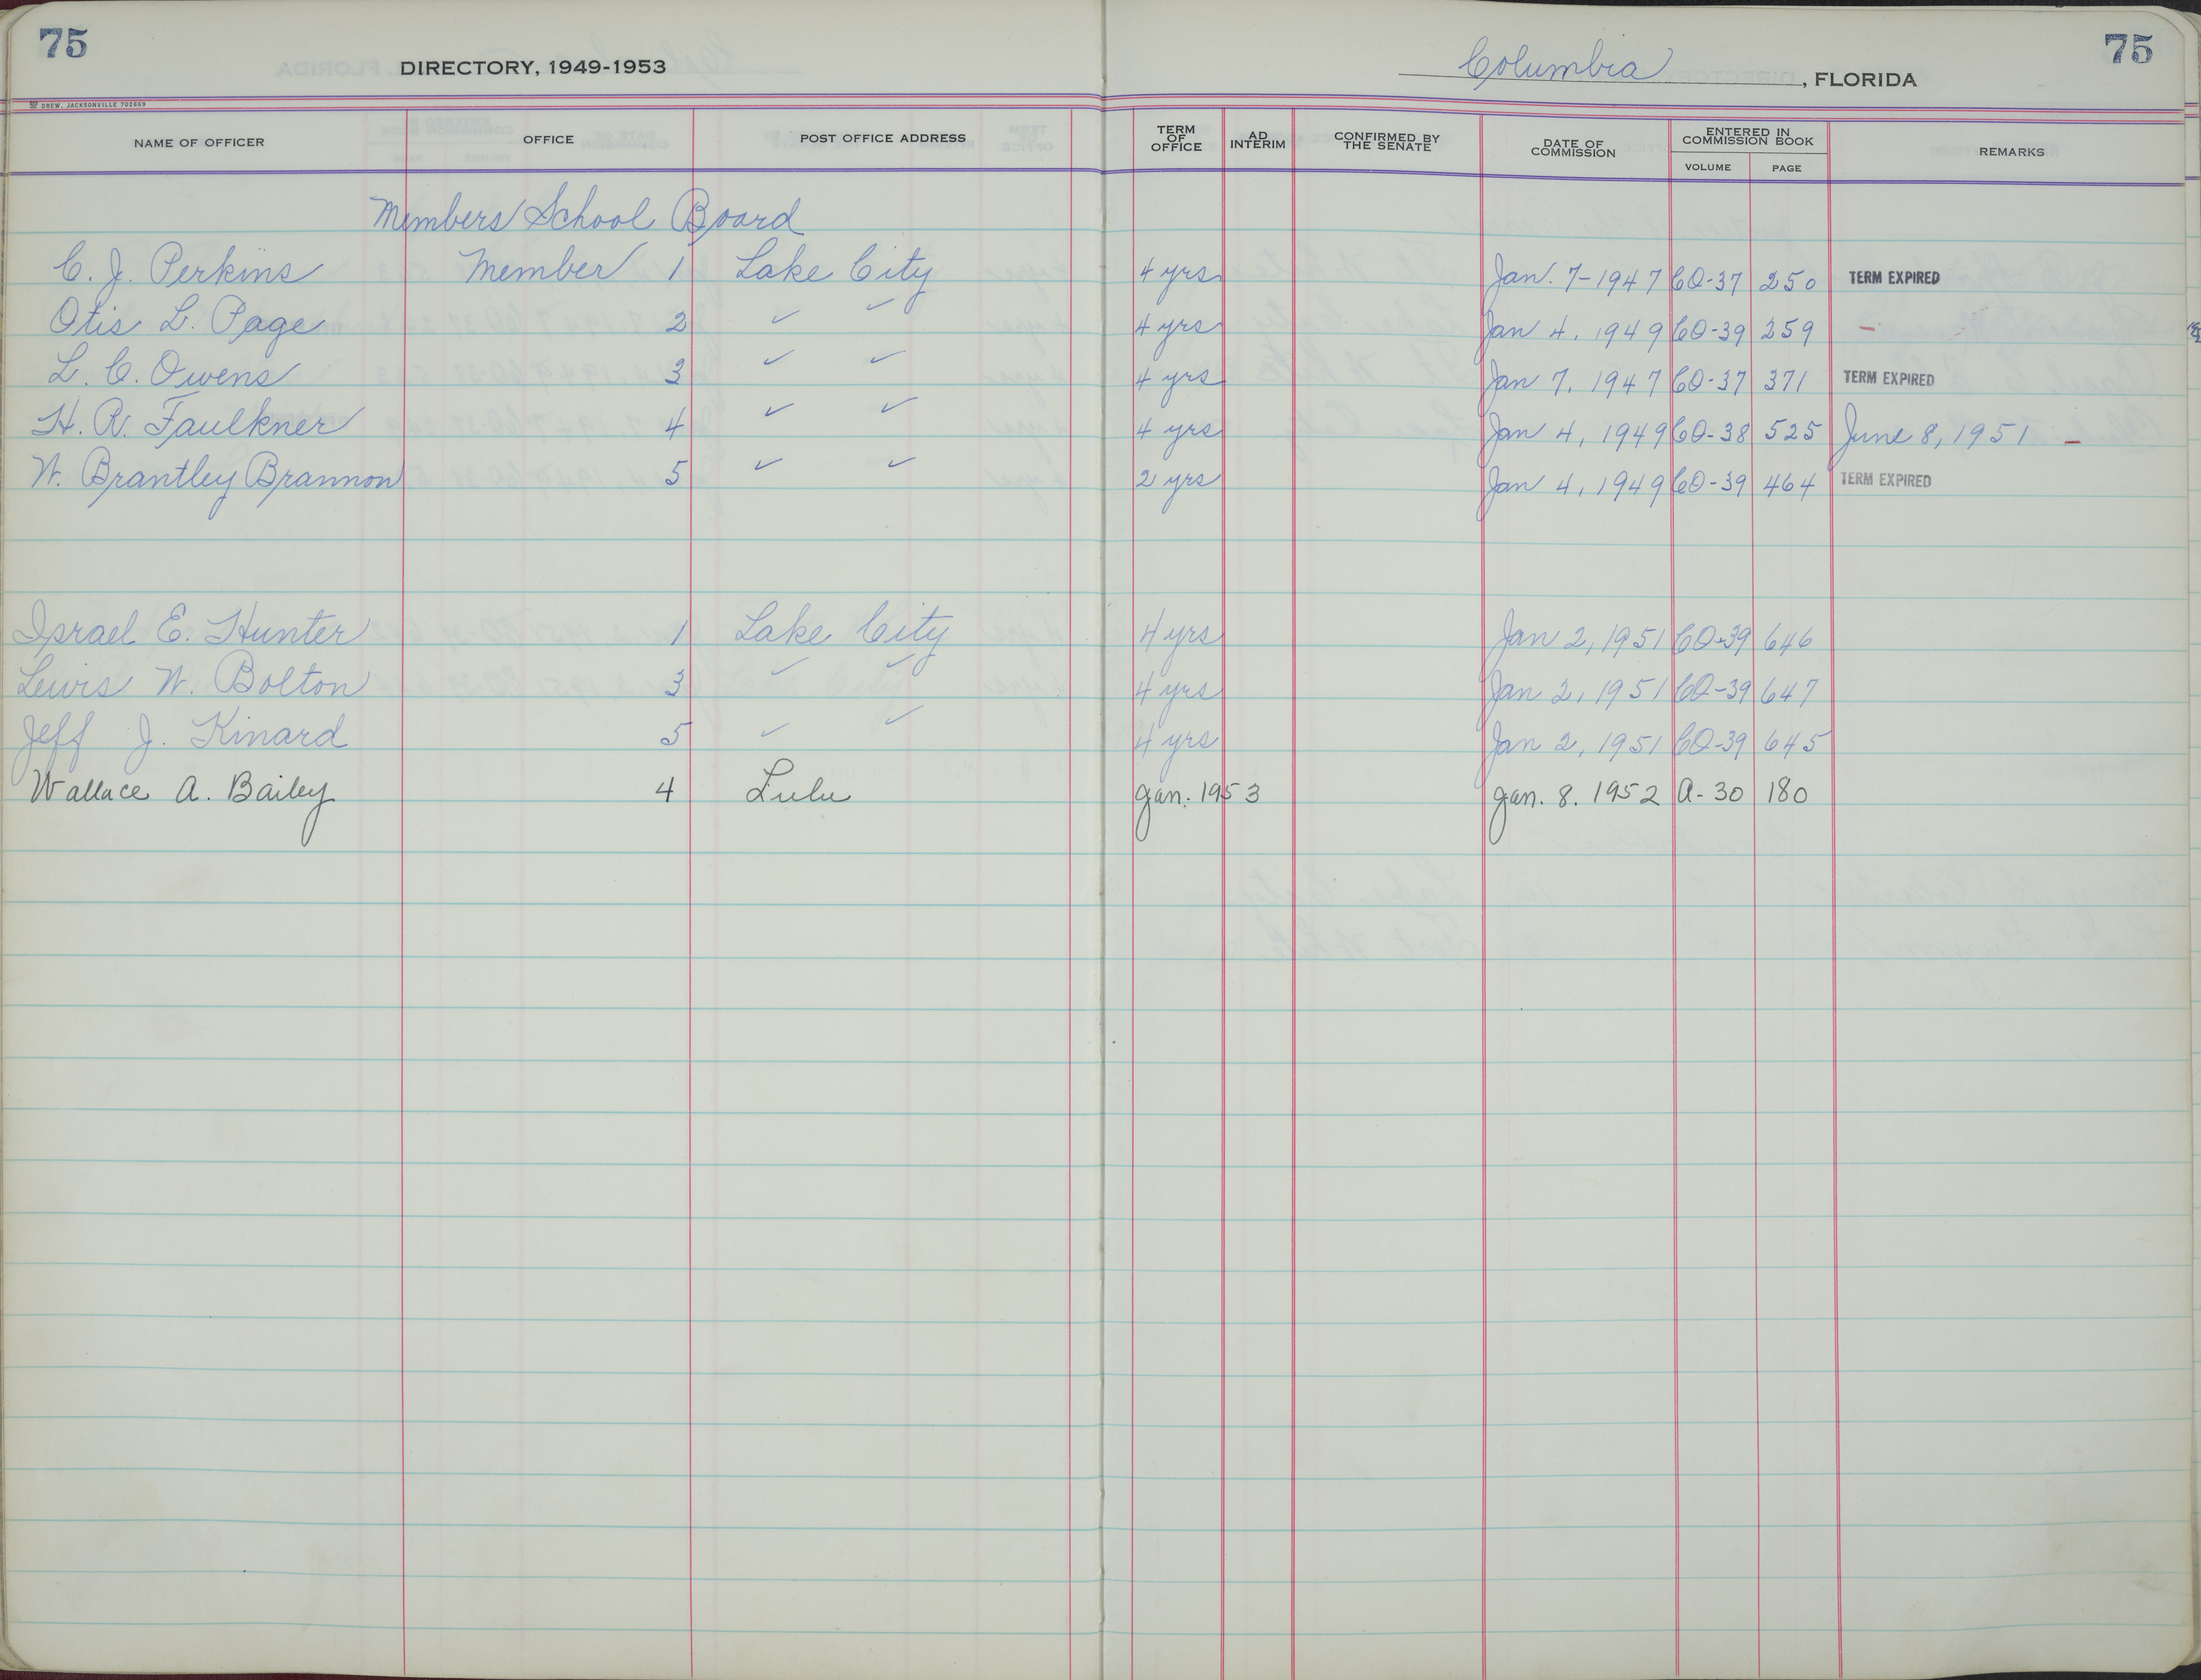 75
75
DIRECTORY, 1949-1953
Columbia, FLORIDA
DREW, JACKSONVILLE 702669
NAME OF OFFICER OFFICE POST OFFICE ADDRESS TERM OF OFFICE AD INTERIM CONFIRMED BY THE SENATE DATE OF COMMISSION ENTERED IN COMMISSION BOOK VOLUME PAGE REMARKS
Members School Board
C. J. Perkins Member 1 Lake City 4 yrs Jan. 7-1947 CO-37 250 TERM EXPIRED
Otis L. Page 2 ✓ ✓ 4 yrs Jan 4, 1949 CO-39 259 -
L. C. Owens 3 ✓ ✓ 4 yrs Jan 7, 1947 CO-37 371 TERM EXPIRED
H. R. Faulkner 4 ✓ ✓ 4 yrs Jan 4, 1949 CO-38 525 June 8, 1951 -
W. Brantley Brannon 5 ✓ ✓ 2 yrs Jan 4, 1949 CO-39 464 TERM EXPIRED
Israel E. Hunter 1 Lake City 4 yrs Jan 2, 1951 CO-39 646
Lewis W. Bolton 3 ✓ ✓ 4 yrs Jan 2, 1951 CO-39 647
Jeff J. Kinard 5 ✓ ✓ 4 yrs Jan 2, 1951 CO-39 645
Wallace A. Bailey 4 Lulu Jan. 1953 Jan. 8. 1952 A-30 180